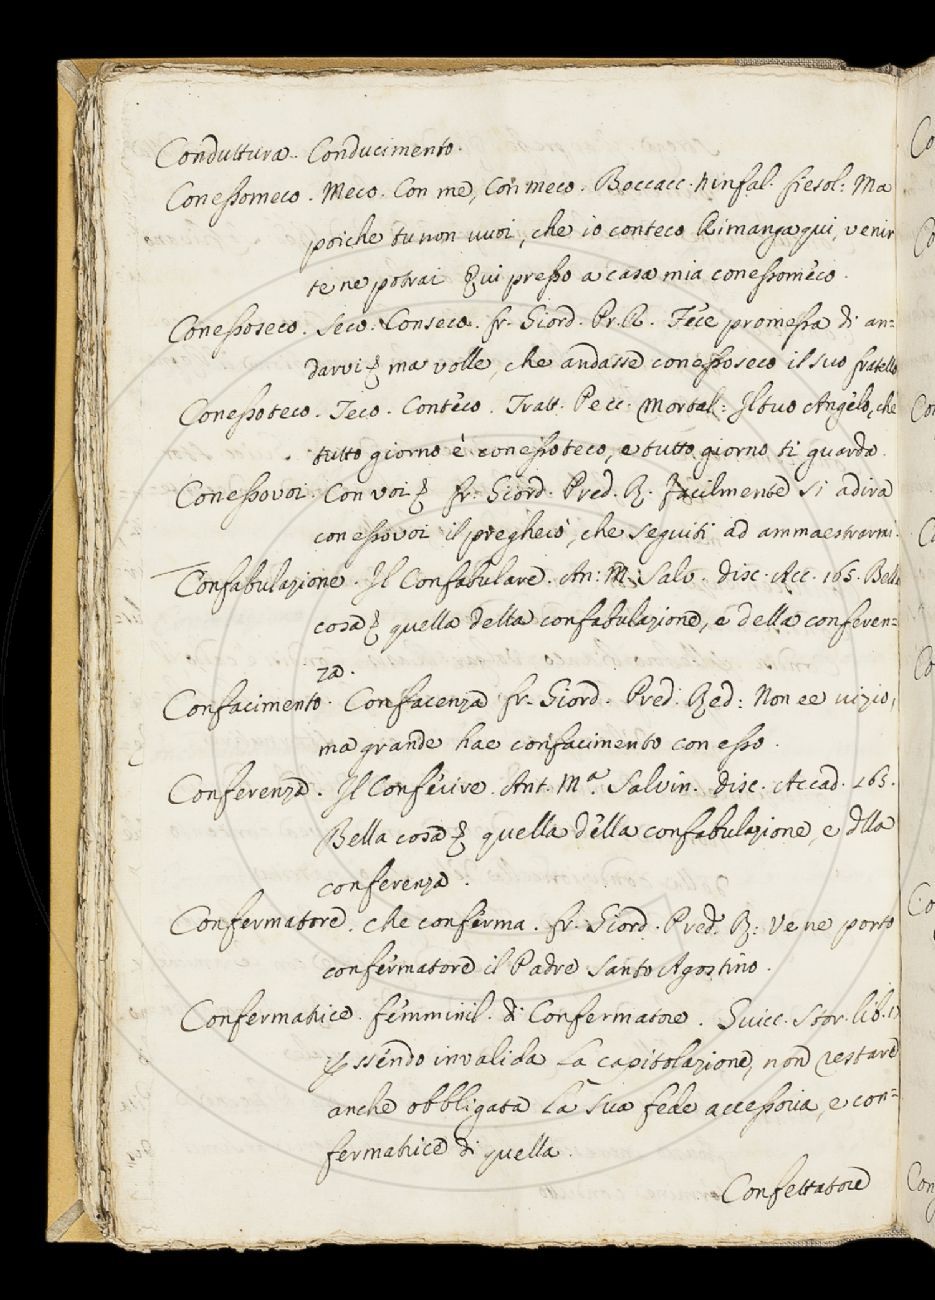 Conduttura. Conducimento.
Conessomeco. Meco. Con me, Con meco. Boccacc. Ninfal. fiesol: Ma
poiche tu non vuoi, che io conteco Rimanga qui, venir
tene potrai qui presso a casa mia conessomeco.
Conessoseco. Seco. Conseco. fr. Giord. Pr. R. Fece promessa di an=
darvi; ma volle, che andasse conessoseco il suo fratello
Conessoteco. Teco. Conteco. Tratt. Pecc. Mortal: Il tuo Angelo, che
tutto giorno è conessoteco, e tutto giorno ti guarda.
Conessovoi. Con voi; fr. Giord. Pred. R. facilmente si adira
conessovoi il pregherò, che seguiti ad ammaestrarmi.
Confabulazione. Il Confabulare. An: M. Salv. disc. Acc. 165. Bella
cosa; quella della confabulazione, e della conferen=
za.
Confacimento. Confacenza fr. Giord. Pred. Red: Non ee vizio,
ma grande hae confacimento con esso.
Conferenza. Il Conferire. Ant. Mª. Salvin. disc. Accad. 165.
Bella cosa; quella della confabulazione, e dlla
conferenza.
Confermatore. che conferma. fr. Giord. Pred. R: Ve ne porto
confermatore il Padre Santo Agostino.
Confermatrice. femminil. di Confermatore. Guicc. Stor. lib. 17
Essendo invalida la capitolazione, non restare
anche obbligata la sua fede accessoria, e con=
fermatrice di quella.
Confettatore